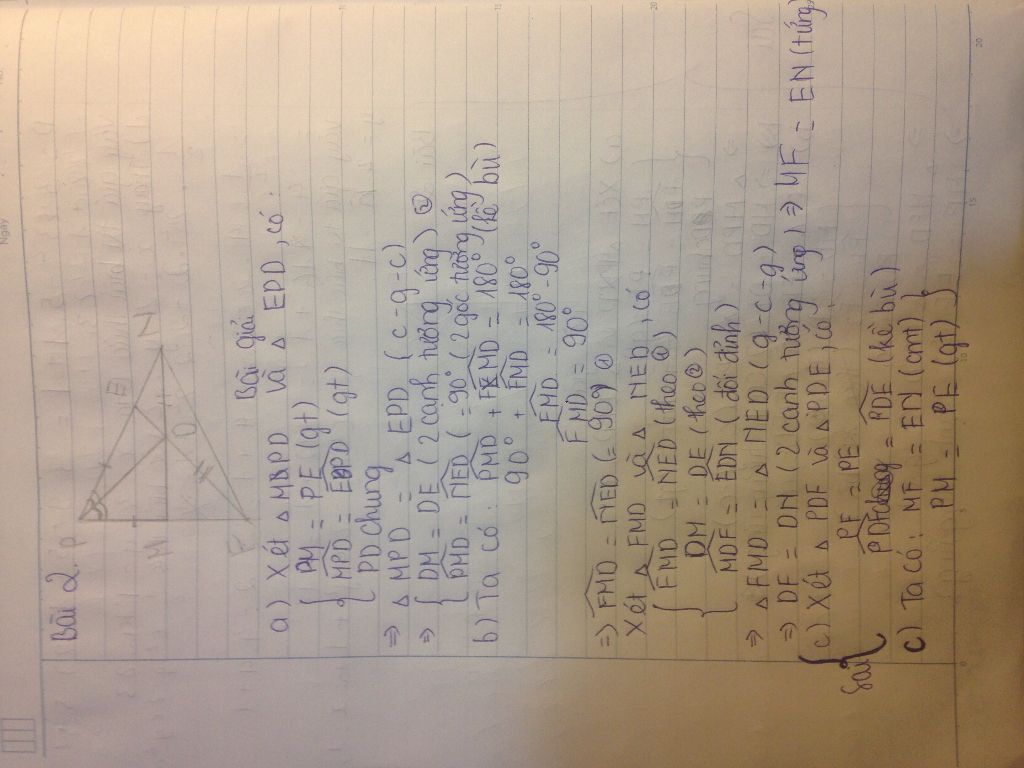 Ngày
Bài 2.
P
E
N
M
D
F
Bài giải
a) Xét △ MPD và △ EPD, có:
PM = PE (gt)
MPD = EPD (gt)
PD chung
⇒ △ MPD = △ EPD (c-g-c)
⇒ DM = DE (2 cạnh tương ứng) ②
PMD = NED (=90° (2 góc tương ứng)
b) Ta có: PMD + FMD = 180° (kề bù)
90° + FMD = 180°
FMD = 180° - 90°
FMD = 90°
⇒ FMD = NED (= 90°) ①
Xét △ FMD và △ NED, có:
FMD = NED (theo ①)
DM = DE (theo ②)
MDF = EDN (đối đỉnh)
⇒ △ FMD = △ NED (g-c-g)
⇒ DF = DN (2 cạnh tương ứng) ⇒ MF = EN (tứng)
c) Xét △ PDF và △ PDE, có:
Sai
PF = PE
PDF = PDE (kề bù)
c) Ta có: MF = EN (cmt)
PM = PE (gt)